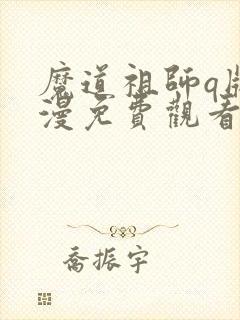 魔道祖師q版
漫免費觀看
喬振宇